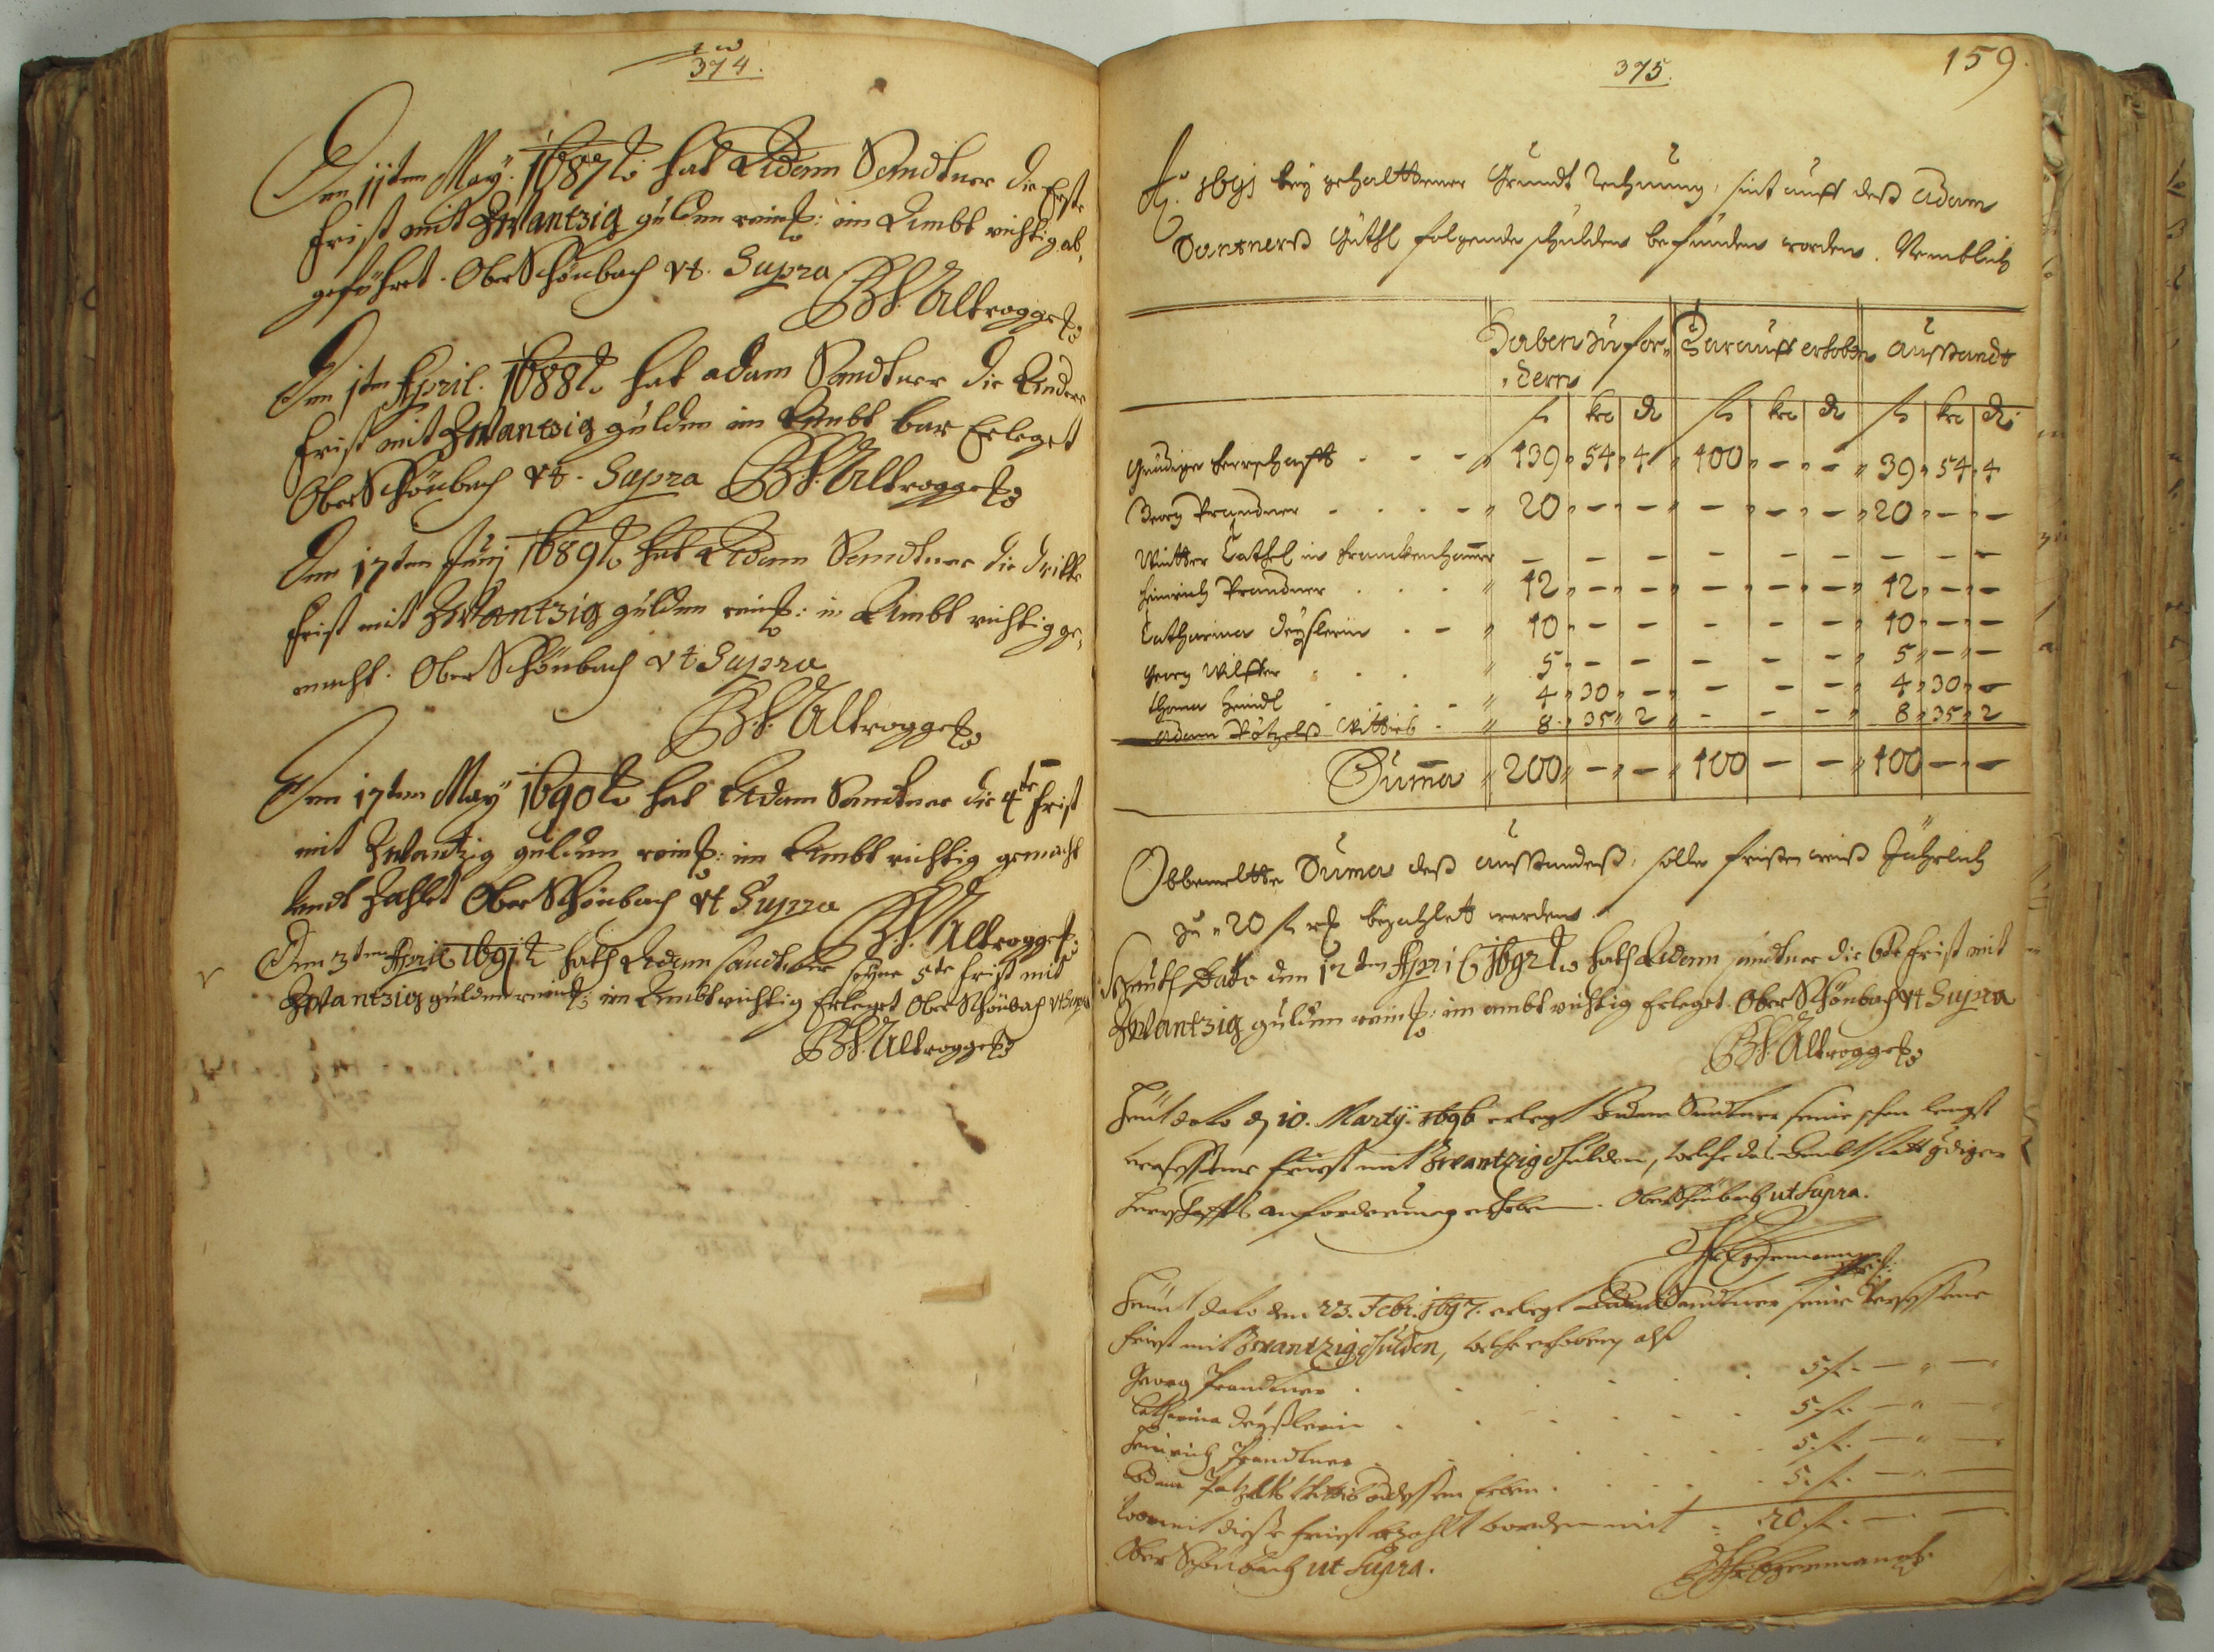 374.
Den 11ten May: 1687to hat Adam Sandtner die Erste
frist mit Zwantzig gulden reinß: im Ambt richtig ab,
geführet. Ober Schönbach vt. Supra
Altrogge
Den 1ten April. 1688to hat adam Sandtner die Andere
frist mit Zwantzig gulden im Ambt bar Erleget
Ober Schönbach vt. Supra Altrogge
Den 17ten Junj 1689to hat Adam Sandtner die dritte
frist mit Zwantzig gulden reinß: in Ambt richtig ge,
macht. Ober Schönbach vt Supra
Altrogge
Den 17ten May 1690to hat Adam Sandtner die 4te frist
mit Zwantzig gulden reinß: im Ambt richtig gemacht
undt Zahlet Ober Schönbach vt Supra
Altrogge
Den 3ten April 1691to hath Adam sandtner seyne 5te frist mit
Zwantzig gulden reinß: im Ambt richtig Erleget Ober Schönbach vt Supra
Altrogge
375.
159
Ao. 1691 bey gehalttener Grundt Rechnung, sint auff deß Adam
Santnerß Güthl folgende schulden befunden worden. Nemblich
Haben zu for- Darauff erhoben Ausstandt
dern
fl kr d fl kr d fl kr d
Gnädige Herrschafft - - - 139 54 4 100 - - 39 54 4
Georg Prandner - - - - 20 - - - - - 20 - -
Winther Cathel in Franckenhamer - - - - - - - - -
Heinrich Prandner . . . 12 - - - - - 12 - -
Catharina Deysslerin . - 10 - - - - - 10 - -
Georg Wilffter . . . 5 - - - - - 5 - -
Thoma Heindl - - - - 4 30 - - - - 4 30 -
Adam Pötzelß Wittieb - 8 35 2 - - - 8 35 2
Suma 200 - - 100 - - 100 - -
Obbemeltte Suma deß ausstandeß, solle fristen weiß Jährlich
zu 20 fl rh bezahlet werden.
Heuth Dato den 12ten April 1692to hath Adam sandtner die 6te frist mit
Zwantzig gulden reinß: im ambt richtig Erleget. Ober Schönbach vt Supra
Altrogge
Heut dato d 10. Martÿ. 1696 erlegt Adam Sandtner seine schon lengst
versessene friest mit Zwantzig Gulden, welche das Ambt statt gdiger
Herrschafft anforderung erhoben. Ober Schönbach ut Supra.
Heunt dato den 23. Febr. 1697. erlegt Adam Sandtner seine versessene
friest mit Zwantzig Gulden, welche erhoben, alß
Georg Prandtner . . . . . 5 fl. - -
Catharina Deyßlerin . . . . . 5 fl. - -
Heinrich Prandtner . . . . . 5. fl. - -
Adam Pötzelß Wittib dessen Erben . . . 5. fl. - -
Wormit diese friest bezahlt worden mit . 20. fl. - -
Ober Schönbach ut Supra.